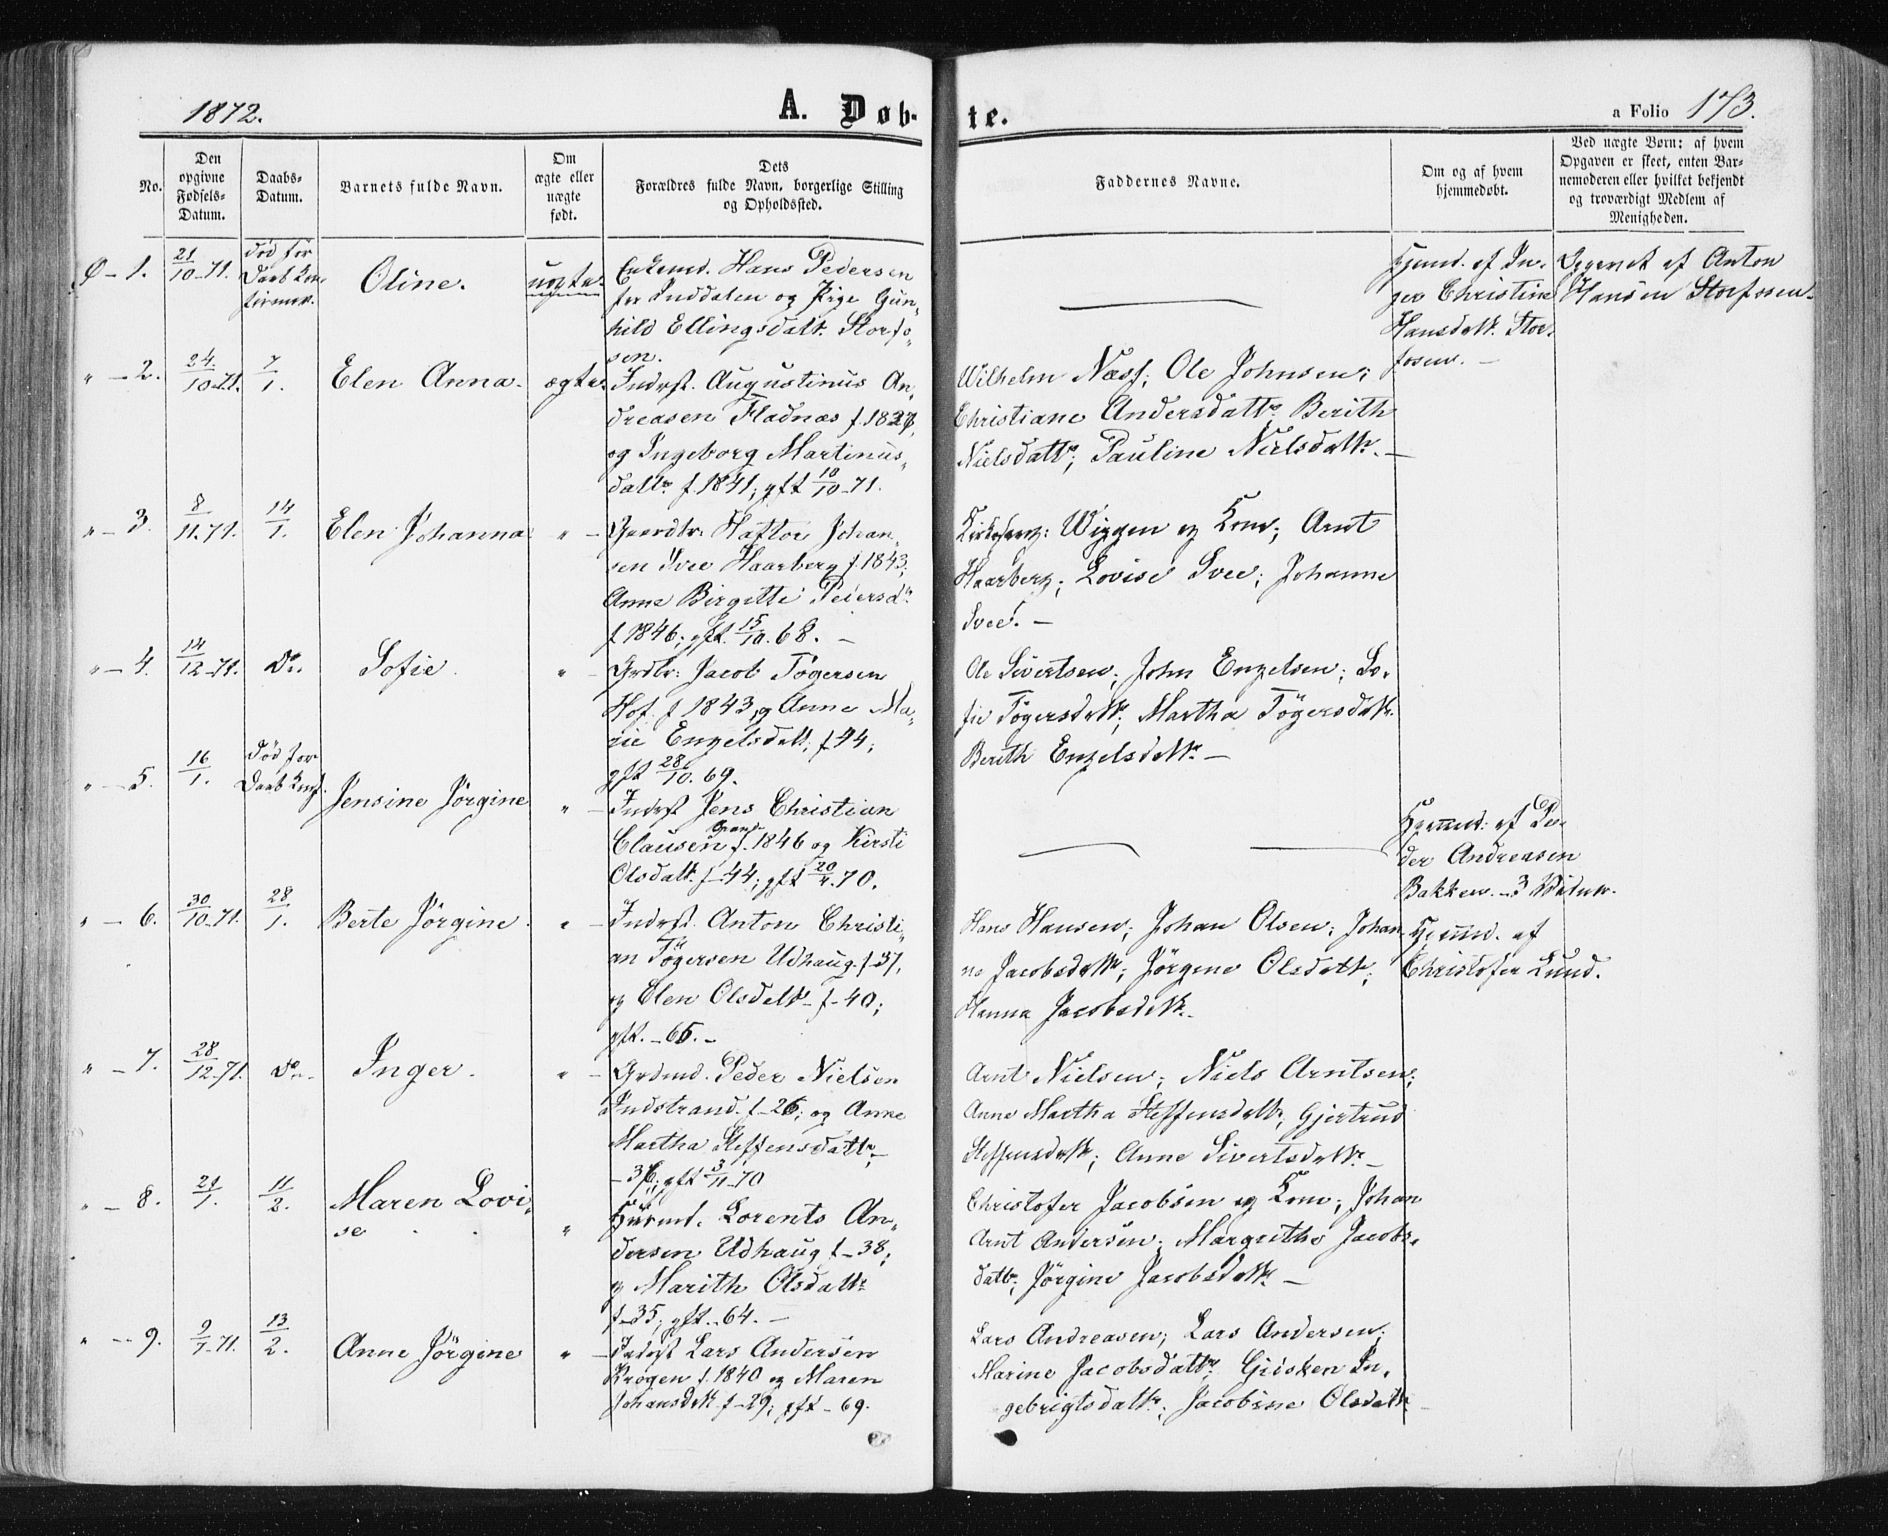 1872.
A. Døb-
te.
a Folio 173.
No.
Den
opgivne
Fødsels-
Datum.
Daabs-
Datum.
Barnets fulde Navn.
Om
ægte eller
uægte
født.
Dets
Forældres fulde Navn, borgerlige Stilling
og Opholdssted.
Faddernes Navne.
Om og af hvem
hjemmedøbt.
Ved uægte Børn: af hvem
Opgaven er skeet, enten Bar-
nemoderen eller hvilket bekjendt
og troværdigt Medlem af
Menigheden.
Ø - 1.
21/10-71.
Død før
Daab
Oline.
uægte
Enkemd. Hans Pedersen
og Pige Gun-
hild Ellingsdatt. Storfo-
sen.
Hjemd. af In-
ger Christine
Hansdatt. Stor-
fosen. -
Opgivet af Anton
Hansen Storfosen.
" - 2.
24/10-71.
7/1.
Elen Anna.
ægte.
Inderst. Augustinus An-
dreasen Fladnæs f.
og Ingeborg Martinus-
datt. f. 1841; gft 10/10-71.
Wilhelm Næss; Ole Johnsen;
Christiane Andersdattr. Berith
Nielsdattr; Pauline Nielsdattr. -
" - 3.
8/11.71.
14/1.
Elen Johanna
" -
Gaardbr. Haftor Johan-
sen Svee Haarberg f. 1843;
Anne Birgitte Pedersdtr
f. 1846; gft. 15/10.68. -
Kirkesang: Wiggen og Kone; Arnt
Haarberg; Lovise Svee; Johanne
Svee. -
" - 4.
14/12-71.
Do.
Sofie.
" -
Grdbr: Jacob Tøgersen
Hof. f 1843, og Anne Ma-
rie Engelsdatt; f 44;
gft 28/10.69.
Ole Sivertsen; John Engelsen; So-
fie Tøgersdattr; Martha Tøgersdatt.
Berith Engelsdattr. -
" - 5.
16/1.
Død før
Daab
Jensine Jørgine
" -
Inderst Jens Christian
Clausen f. 1846 og Kirsti
Olsdatt. f-44; gft 20/4.70.
Hjemd: af Pe-
der Andreasen
Bakken. - 3 Vidner.
" - 6.
30/10-71.
28/1.
Berte Jørgine.
" -
Inderst. Anton Christi-
an Tøgersen Udhaug. f-37,
og Elen Olsdatt- f-40;
gft. - 65. -
Hans Hansen; Johan Olsen; Johan-
ne Jacobsdattr; Jørgene Olsdatt;
Hanna Jacobsdatt.
Hjemd. af
Christofer Lund.
" - 7.
28/12-71.
Do.
Inger.
" -
Grdmd. Peder Nielsen
Indstrand. f-26; og Anne
Martha Steffensdattr;
- 36; gft 3/11-70
Arnt Nielsen; Niels Arntsen;
Anne Martha Steffensdattr; Gjertrud
Steffensdattr; Anne Sivertsdattr. -
" - 8.
21/1.
11/2.
Maren Lovi-
se
"
Huusmd. Lorents An-
dersen Udhaug f-38;
og Marith Olsdattr
f-35; gft. - 64. -
Christofer Jacobsen og Kone; Johan
Arnt Andersen; Margrethe Jacobs-
dattr; Jørgine Jacobsdattr. -
" - 9.
13/2.
Anne Jørgine
" -
Inderst Lars Andersen
Krogen f. 1840 og Maren
Johansdatt. f-29; gft - 69.
Lars Andreasen; Lars Andersen;
Marine Jacobsdattr. Gidsken In-
gebrigtsdattr; Jacobine Olsdattr.